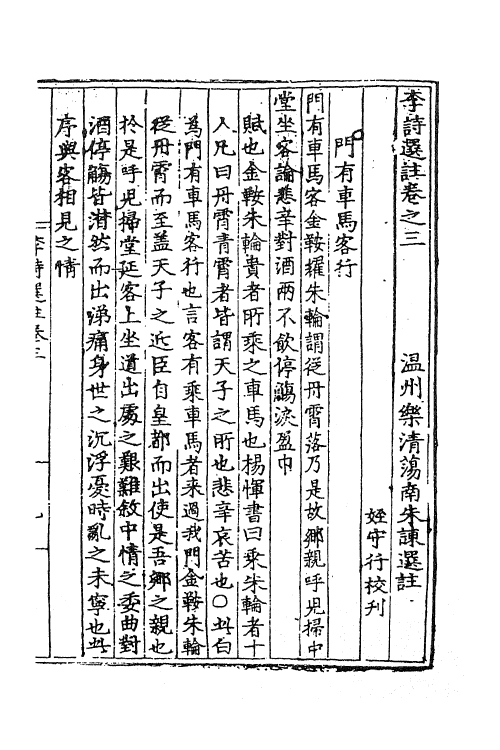 李詩選註卷之三
温州樂清蕩南朱諫選註
姪守行校刋
門有車馬客行
門有車馬客金鞍耀朱輪謂從丹霄落乃是故鄉親呼兒掃中
堂坐客論悲辛對酒兩不飲停觴淚盈巾
賦也金鞍朱輪貴者所乘之車馬也楊惲書曰乘朱輪者十
人凡曰丹霄青霄者皆謂天子之所也悲辛哀苦也〇此白
為門有車馬客行也言客有乘車馬者来過我門金鞍朱輪
從丹霄而至盖天子之近臣自皇都而出使是吾鄉之親也
扵是呼兒掃堂延客上坐道出處之艱難敘中情之委曲對
酒停觴皆潸然而出涕痛身世之沉浮憂時亂之未寧也此
序與客相見之情
李詩選註卷三